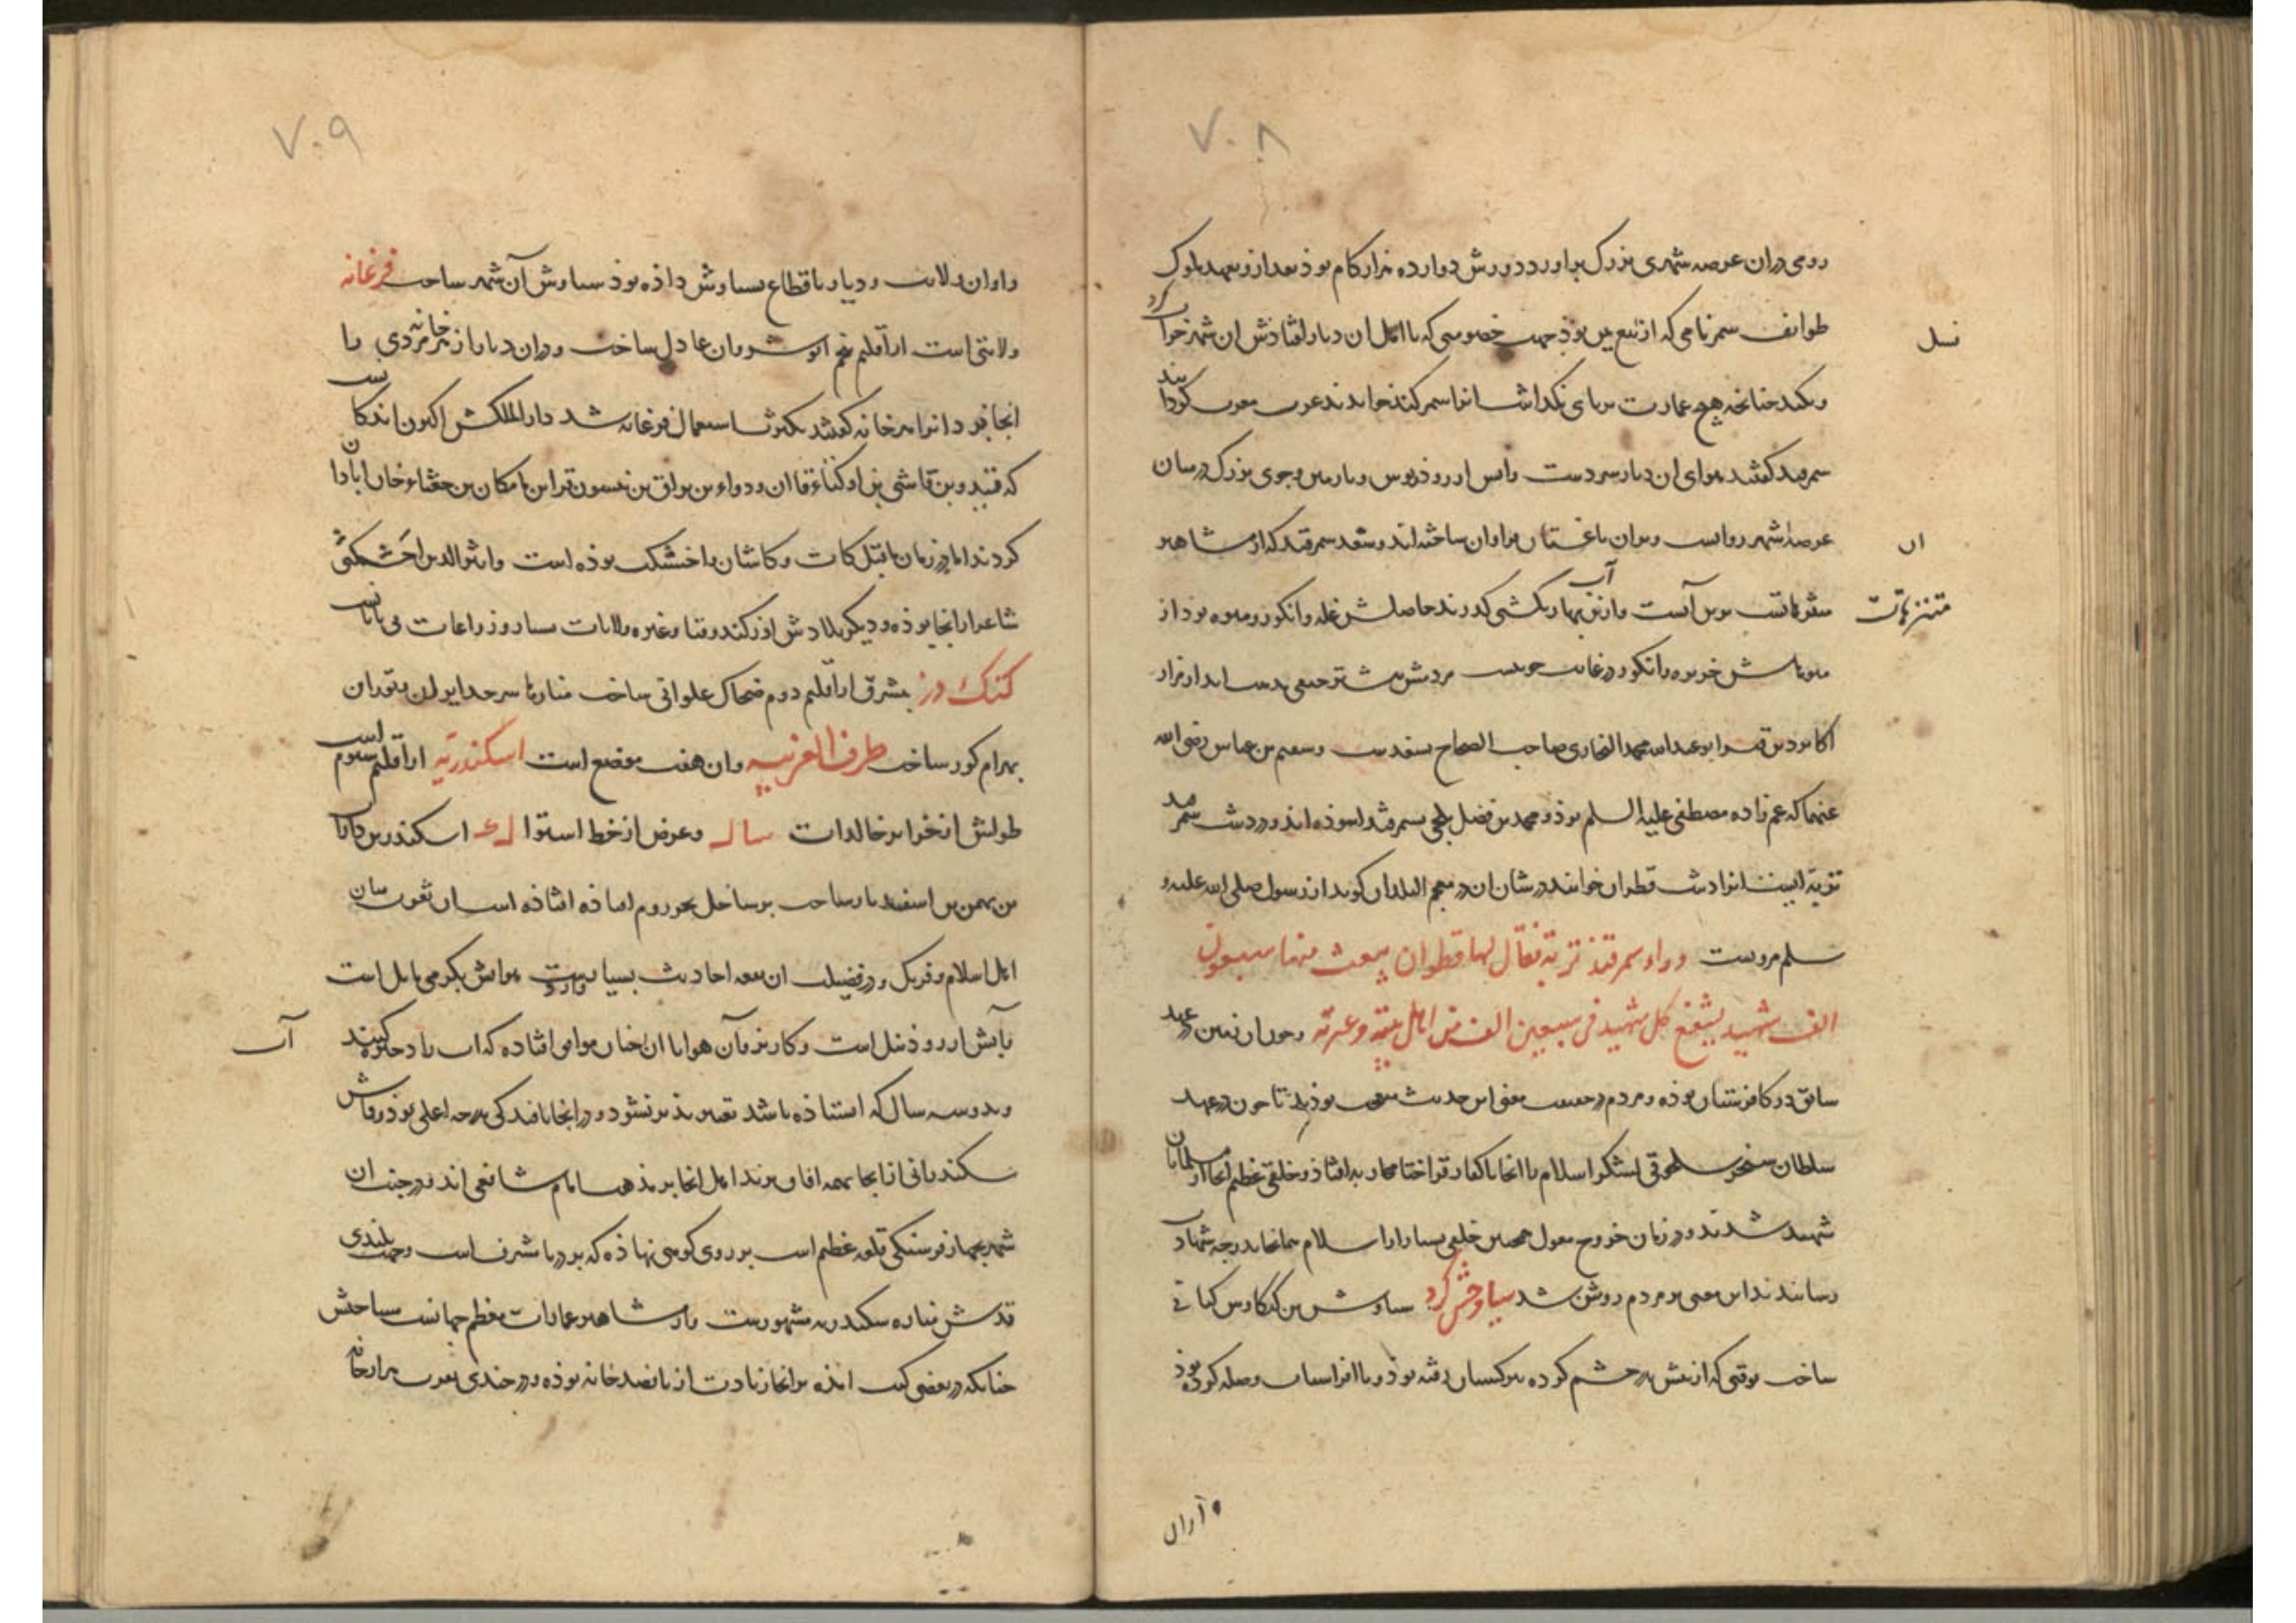 ۷۰۸
رومی دران عرصه شهری بزرک براورد دورش دوازده هزار کام بوذ بعد ازو بعهد ملوک
طوایف سمر نامی که از تبع یمن بوذ جهت خصومتی که با اهل ان دیار افتاذش ان شهر خراب کرد
نسل
وبکند چنانچه هیچ عمارت بر پای نکداشت انرا سمرکند خواندند عرب معرب کردانیدند
سمرقند کفتند هوای ان دیار سردست وابش از روذ و جوی بزرک در میان
عرصه شهر روانست وبران باغستان فراوان ساخته اند وسغد سمرقند که از مشاهیر
ان
متنزهاتست برین آبست وازین آب بهار کشتی کذرند حاصلش غله وانکور ومیوه بوذ از
متنزهاتست
میوهاش خربزه وانکور در غایت خوبیست مردمش بیشتر حنفی مذهب اند از مزار
اکابر دین قبر ابو عبدالله محمد البخاری صاحب الصحاح بسغدست وقثم بن عباس رضی الله
عنهما که عم زاده مصطفی علیه السلم بوذ ومحمد بن فضل بلخی بسمرقند اسوذه اند ودر دشت سمرقند
تربة ایست انرا دشت قطران خوانند در شان ان در معجم البلدان کوید از رسول صلی الله علیه و
سلم مرویست وراء سمرقند تربة فقال لها قطوان یبعث منها سبعون
الف شهید یشفع کل شهید فی سبعین الف من اهل بیته وعترته وچون ان زمین در عهد
سابق در کافرستان بوذه ومردم در حقیقت معنی این حدیث متعجب بوذند تا چون در عهد
سلطان سنجر سلجوقی لشکر اسلام را انجا با کفار قراختا محاربه افتاذ وخلقی عظیم انجا از مسلمانان
شهید شدند ودر زمان خروج مغول همچنین خلقی بسیار از اسلام همانجا بدرجه شهادت
رسانیدند این معنی بر مردم روشن شد سیاوخش کرد سیاوش بن کیکاوس کیانی
ساخت بوقتی که از پیش پدر خشم کرده بترکستان رفته بوذ وبا افراسیاب وصله کرده بوذ
۷۰۹
واو ان ولایت ودیار باقطاع بسیاوش داذه بوذ سیاوش آن شهر ساخت فرغانه
ولایتی است از اقلیم پنجم انوشروان عادل ساخت ودران دیار از هر خانه مردی را
انجا برد وانرا هر خانه کفتند بکثرت استعمال فرغانه شد دار الملکش اکنون اندکانست
که قیدو بن قاشی بن اوکتای قاان ودوا بن براق بن بن جغتای خان ابادان
کردند اما در زمان ماقبل کات وکاشان واخشیکت بوذه است واثیر الدین اخشیکتی
شاعر از انجا بوذه ودیکر بلادش اوزکند وقبا وغیره ولایات بسیار وزراعات بی پایانست
کنک دز بشرق از اقلیم دوم ضحاک علوانی ساخت منارها سرحد ایران بتوران
بهرام کور ساخت طرف الغربیه وان هفت موضع است اسکندریه از اقلیم سیوم است
طولش از جزایر خالدات سا لـ وعرض از خط استوا ل ء اسکندر بن دارا
بن بهمن بن اسفندیار ساخت بر ساحل بحر روم افتاذه است ان ثغر میان
اهل اسلام وفرنک ودر فضیلت ان بقعه احادیث بسیار واردست هواش بکرمی مایل است
آبش از روذ نیلست وکاریز بآن هوا ان چنان موافق افتاده که اب را ذخیره کنند
آب
وبدو سه سال که استاذه باشد تغیر پذیر نشود ودر انجا بافندکی بدرجه اعلی بوذ وقماش
سکندرانی از انجا بهمه افاق برند اهل انجا بر مذهب امام شافعی اند ودر جنب ان
شهر بچهار فرسنکی قلعه عظیم است بر روی کوهی نهاذه که بر دریا مشرف است وجهت بلندی
قدش مناره سکندریه مشهورست واز مشاهیر عمارات معظم جهانست مساحتش
چنانکه در بعضی کتب امذه بر انجا زیادت از پانصد خانه بوذه ودر چندی بقرب هزار خانه